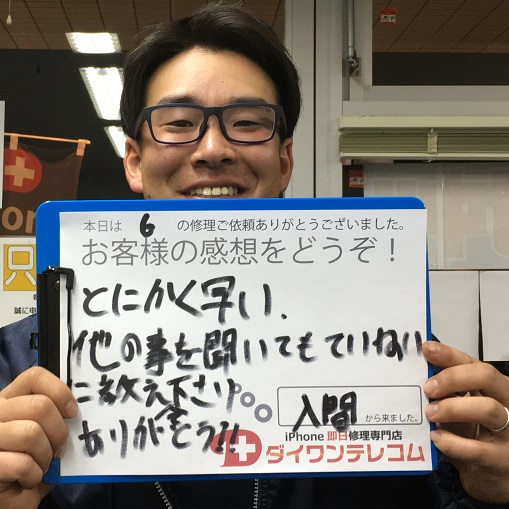 本日は 6 の修理ご依頼ありがとうございました。
お客様の感想をどうぞ！
とにかく早い、
他の事を聞いてもていねい
に教え下さり
ありがとう!!
入間 から来ました。
iPhone 即日修理専門店
ダイワンテレコム